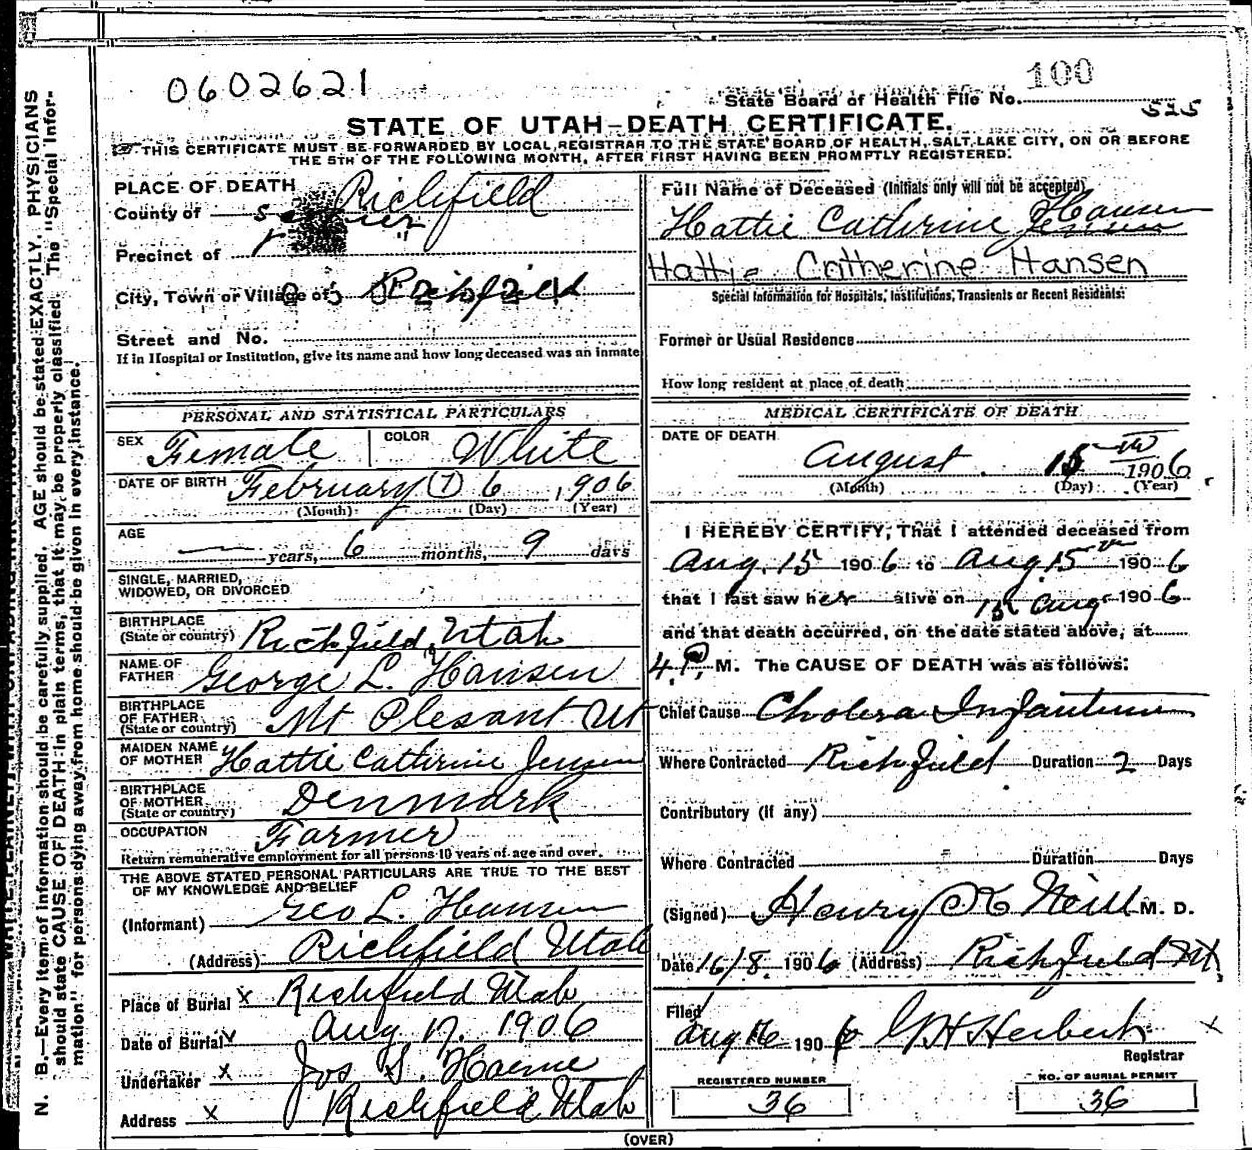 0602621
100
State Board of Health File No.
525
STATE OF UTAH—DEATH CERTIFICATE.
THIS CERTIFICATE MUST BE FORWARDED BY LOCAL REGISTRAR TO THE STATE BOARD OF HEALTH, SALT LAKE CITY, ON OR BEFORE
THE 5TH OF THE FOLLOWING MONTH, AFTER FIRST HAVING BEEN PROMPTLY REGISTERED.
PLACE OF DEATH
County of Sevier Richfield
Precinct of "
City, Town or Village of Richfield
Street and No.
If in Hospital or Institution, give its name and how long deceased was an inmate
PERSONAL AND STATISTICAL PARTICULARS
SEX Female COLOR White
DATE OF BIRTH February (7) 6, 1906
(Month) (Day) (Year)
AGE — years, 6 months, 9 days
SINGLE, MARRIED,
WIDOWED, OR DIVORCED
BIRTHPLACE
(State or country) Richfield, Utah
NAME OF
FATHER George L. Hansen
BIRTHPLACE
OF FATHER
(State or country) Mt Plesant Ut
MAIDEN NAME
OF MOTHER Hattie Catherine Jensen
BIRTHPLACE
OF MOTHER
(State or country) Denmark
OCCUPATION Farmer
Return remunerative employment for all persons 10 years of age and over.
THE ABOVE STATED PERSONAL PARTICULARS ARE TRUE TO THE BEST
OF MY KNOWLEDGE AND BELIEF
(Informant) Geo L. Hansen
(Address) Richfield Utah
Place of Burial x Richfield Utah
Date of Burial Aug 17. 1906
Undertaker x Jos S. Horne
Address x Richfield Utah
Full Name of Deceased (Initials only will not be accepted)
Hattie Catherine Jensen Hansen
Hattie Catherine Hansen
Special Information for Hospitals, Institutions, Transients or Recent Residents:
Former or Usual Residence
How long resident at place of death
MEDICAL CERTIFICATE OF DEATH
DATE OF DEATH
August 15th 1906
(Month) (Day) (Year)
I HEREBY CERTIFY, That I attended deceased from
Aug. 15 1906 to Aug. 15th 1906
that I last saw her alive on 15 Aug 1906
and that death occurred, on the date stated above, at
4. P. M. The CAUSE OF DEATH was as follows:
Chief Cause Cholera Infantum
Where Contracted Richfield Duration 2 Days
Contributory (if any)
Where Contracted Duration Days
(Signed) Henry K Neill M. D.
Date 16/8. 1906 (Address) Richfield Ut
Filed
Aug 16 1906 Herbert x
Registrar
REGISTERED NUMBER
36
NO. OF BURIAL PERMIT
36
(OVER)
N. B.—Every item of information should be carefully supplied. AGE should be stated EXACTLY. PHYSICIANS
should state CAUSE OF DEATH in plain terms, that it may be properly classified. The "Special Infor-
mation" for persons dying away from home should be given in every instance.